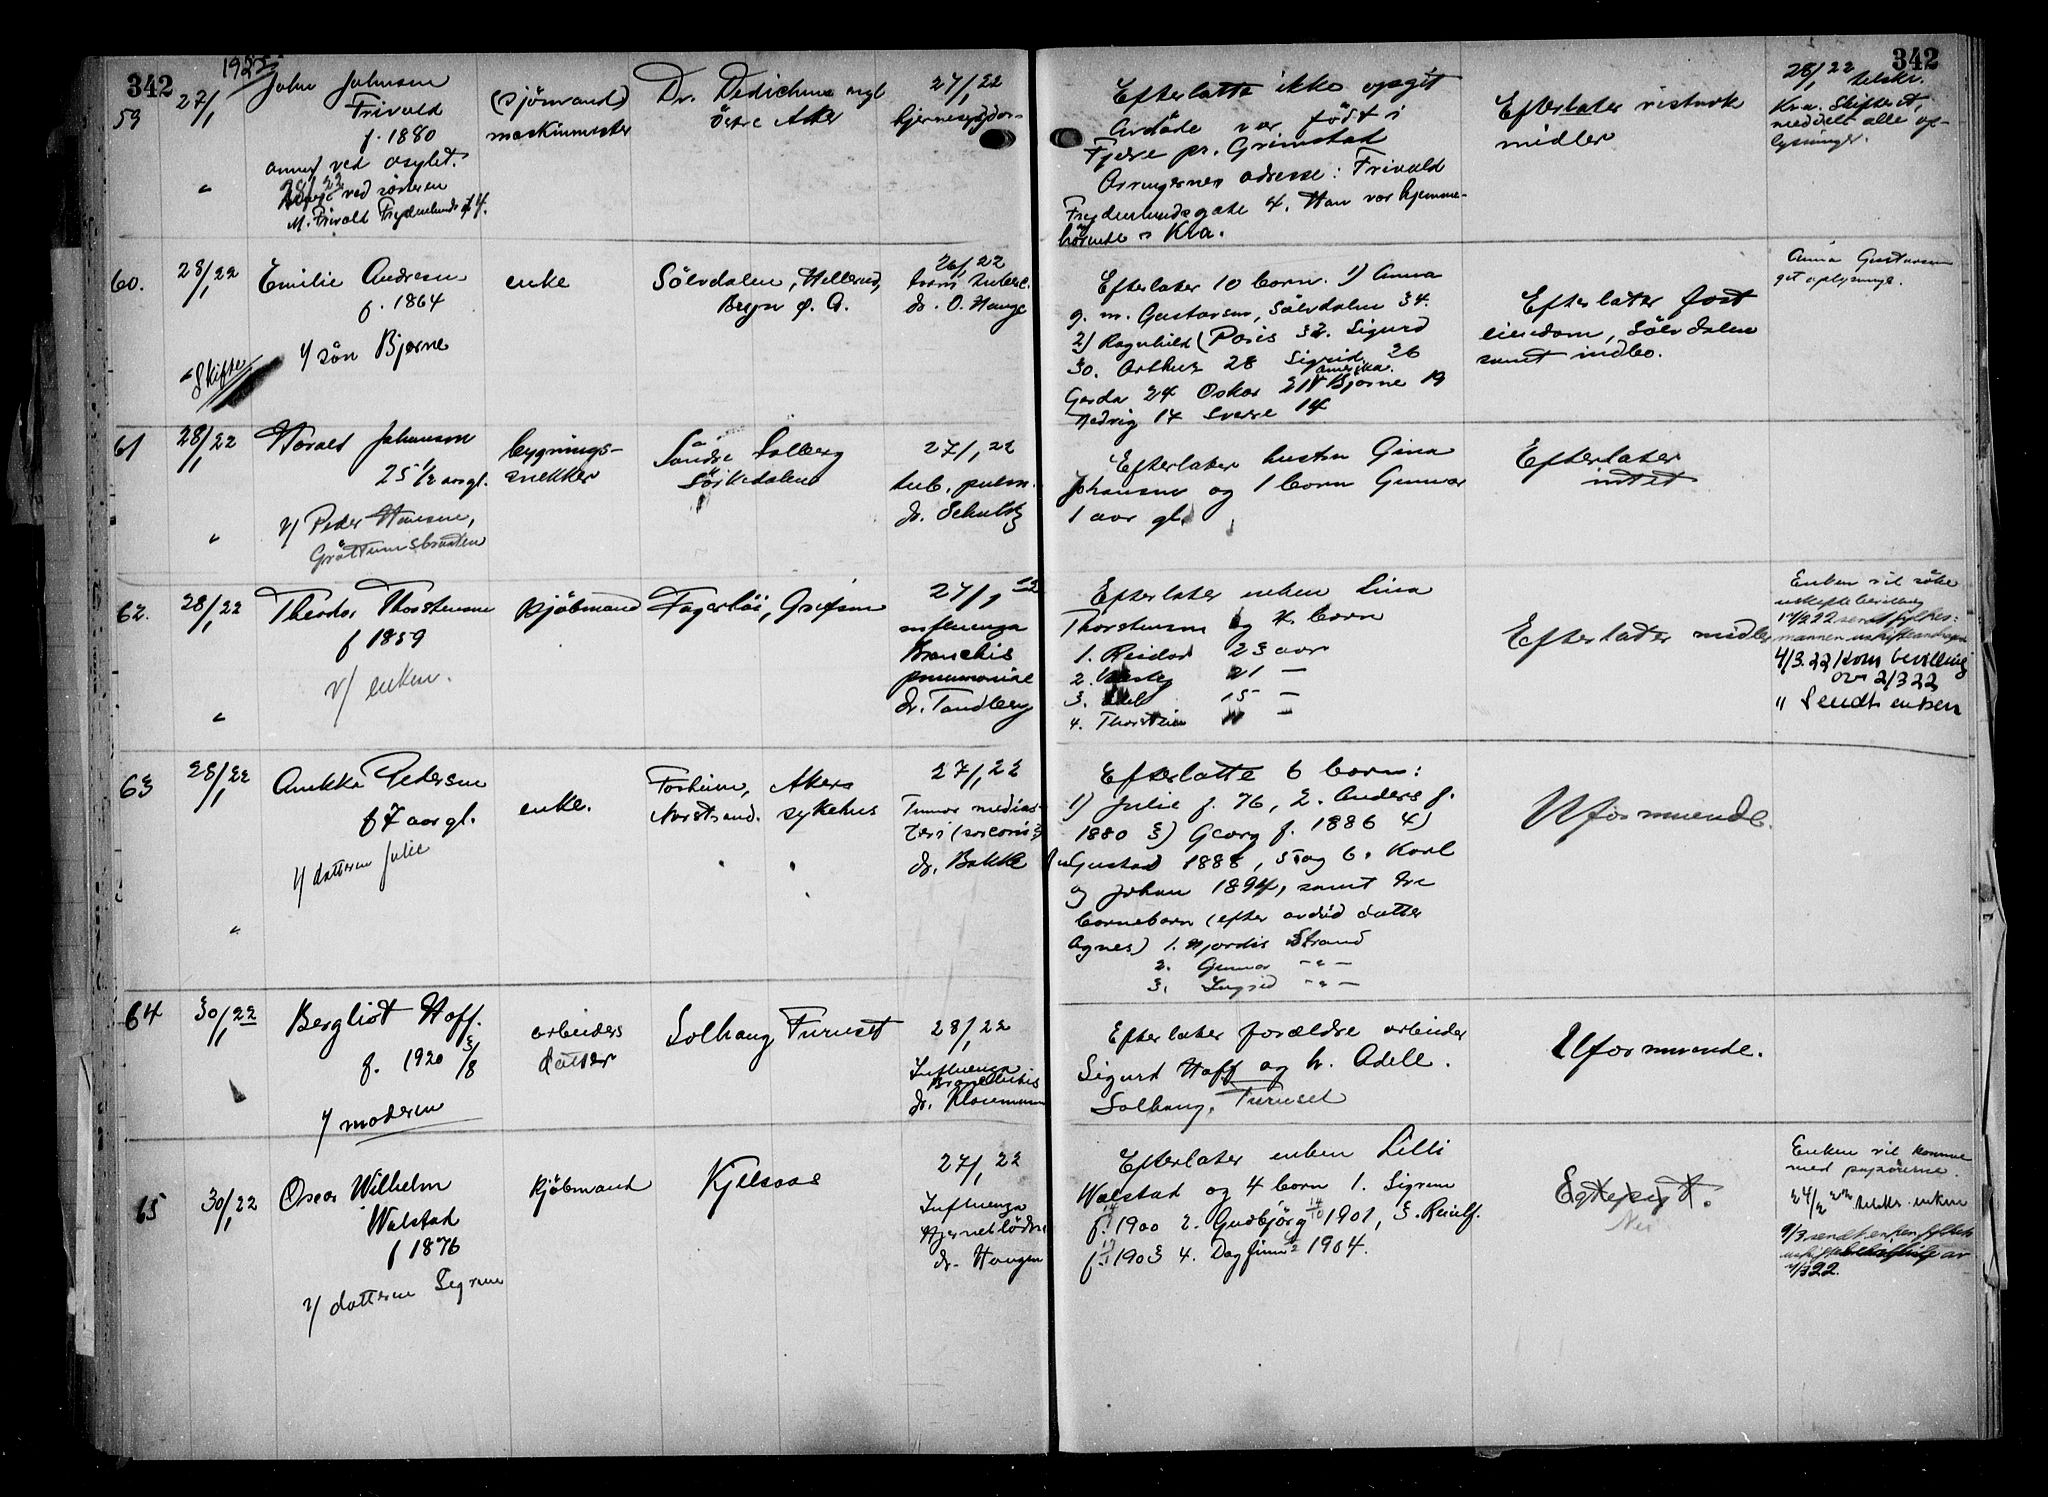 342
1922
59
27/1
John Johnsen
Frivold
f. 1880
anm ved asylet.
28/1 22
ved sönnen
M. Frivold Frydenlunds gt 4.
(sjömand)
maskinmester
Dr. Dedichens
östre Aker
27/1 22
Efterlatte ikke opgit
Avdöde var födt i
Fjære pr. Grimstad
Arvingernes adresse: Frivold
Frydenlundsgate 4. Han var hjemme-
hörende i Kra.
Efterlater
midler
342
28/1 22
Kra. Skifteret,
meddelt alle op-
lysninger.
60.
28/1 22
Skifte
Emilie Andresen
f. 1864
v/ sön Bjarne
enke
Sölvdalen, Hellerud,
Bryn ö. A.
26/1 22
dr. O. Hauge
Efterlater 10 barn. 1) Anna
g. m. Gustavsen, Sölvdalen 34.
2) Ragnhild (Paris 32. Sigurd
30. Arthur 28 Sigrid 26
Amerika.
Gerda 24 Oskar 21 Bjarne 19
Hedvig 14 Sverre 14
Efterlater fast
eiendom, Sölvdalen
samt indbo.
Anna Gustavsen
git oplysninge.
61
28/1 22
Harald Johansen
25 1/2 aar gl.
v/ Peder Hansen,
Gråttumsbraaten
bygnings-
snekker
Söndre Solberg
Sörkedalen
27/1 22
tub. pulm.
dr. Schultz
Efterlater hustru Gina
Johansen og 1 barn Gunvor
1 aar gl.
Efterlater
intet
62.
28/1 22
Theodor Thorstensen
f 1859
v/ enken.
kjöbmand
Fagerli, Grefsen
27/1 22
influenza
Bronchis
pneumonie
dr. Tandberg
Efterlater enken Lina
Thorstensen og 4 barn
1. Reidar 23 aar
2. 21 —
3. 15 —
4. Thorstein —
Efterlader midler
Enken vil söke
uskiftebevilling
4/3.22 kom bevilling
av 2/3 22
" Sendt enken
63
28/1 22
Annkka Pedersen
67 aar gl.
v/ datteren Julie
enke.
Forheim, Akers
Norstrand. sykehus
27/1 22
Tumor medias-
dr. Bakke
Efterlatte 6 barn:
1) Julie f. 76, 2. Anders f.
1880 3) Georg f. 1886 4)
Gustav 1888, 5 og 6. Karl
og Johan 1894, samt tre
barnebarn (efter avdöd datter
Agnes) 1. Hjordis Strand
2. Gunnar -"-
3. Ingrid -"-
Uformuende.
64
30/1 22
Bergliot Hoff.
f. 1920 3/8
v/ moderen
arbeiders
datter
Solhaug Furuset
28/1 22
Influenza
Bronchitis
dr. Klasemann
Efterlater forældre arbeider
Sigurd Hoff og h. Adell.
Solhaug, Furuset
Uformuende.
65
30/1 22
Oscar Wilhelm
Walstad
f 1876
v/ datteren Sigrun
kjöbmand
Kjelsaas
27/1 22
Influenza
Hjerneblödn
dr. Haugen
Efterlater enken Lilli
Walstad og 4 barn 1. Sigrun
f. 1900 2. Gudbjörg 14/10 1901, 3. Reiulf.
f. 1903 4. Dagfinn 1904.
Enken vil komme
med papirerne.